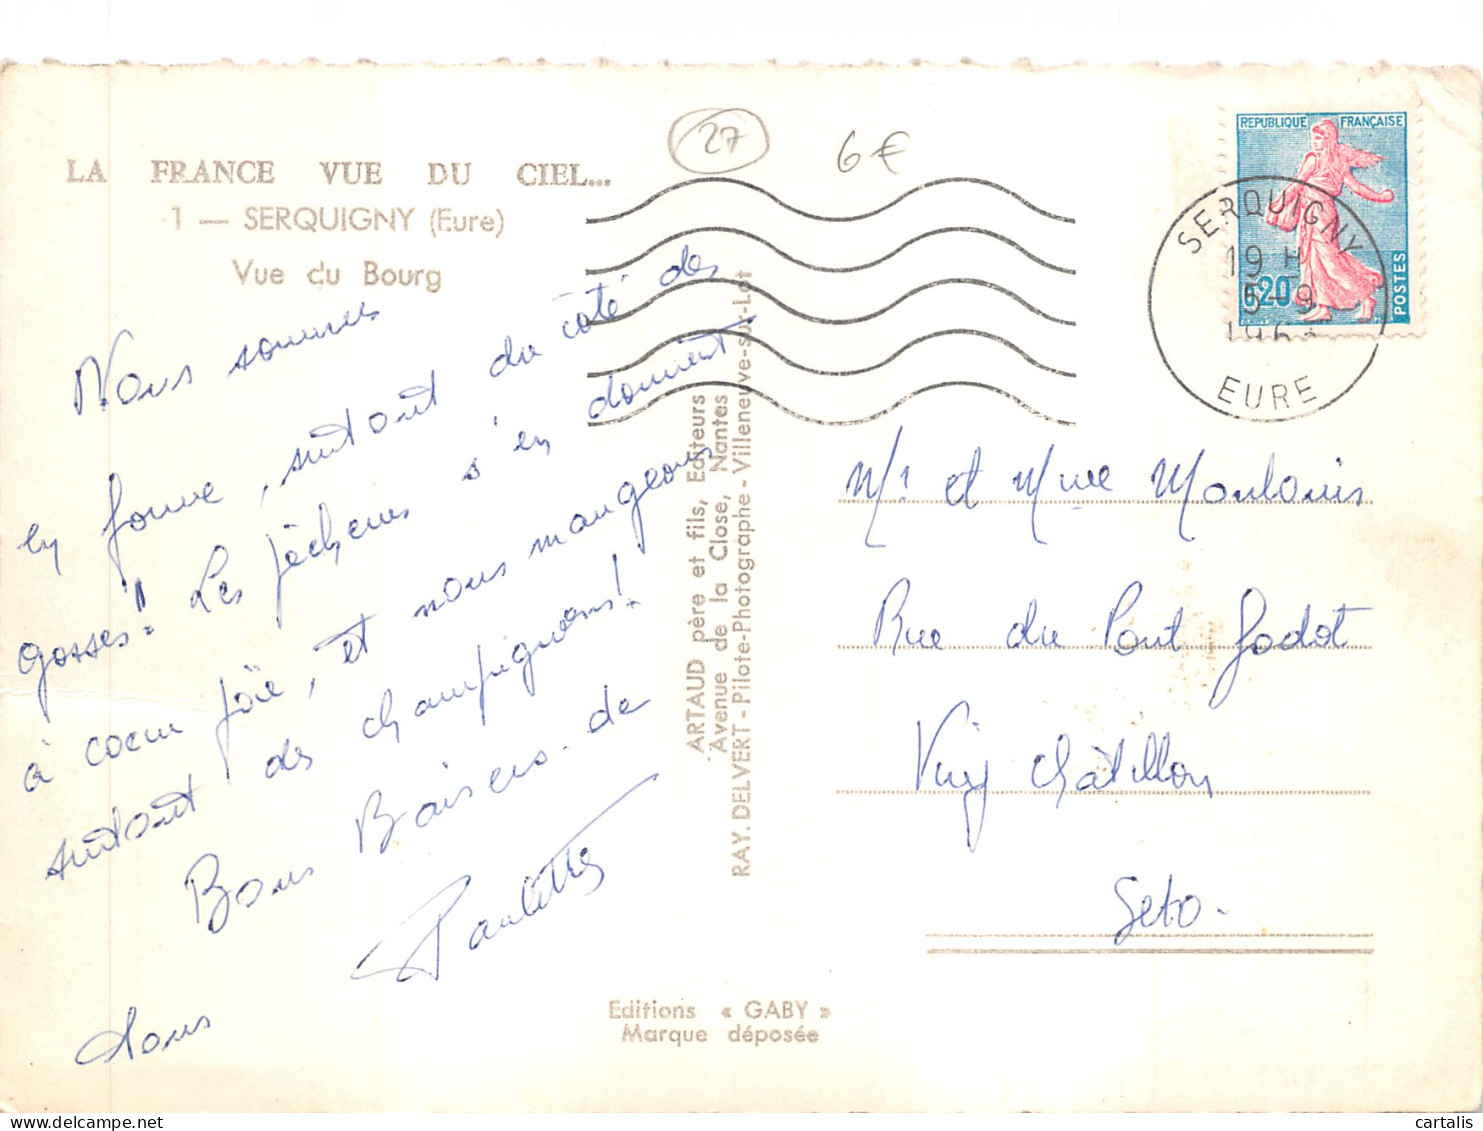 27
6€
LA FRANCE VUE DU CIEL...
1 — SERQUIGNY (Eure)
Vue du Bourg
REPUBLIQUE FRANÇAISE
0,20
POSTES
SERQUIGNY
19 H
5-9
1963
EURE
Nous sommes
en forme, surtout du côté des
gosses! Les pêcheurs s'en donnent
à coeur joie, et nous mangeons
surtout des champignons!
Bons Baisers de
tous
Paulette
ARTAUD père et fils, Editeurs
Avenue de la Close, Nantes
RAY. DELVERT - Pilote-Photographe - Villeneuve-sur-Lot
Mr et Mme Moulouis
Rue du Pont Godot
Viry Châtillon
Seto.
Editions « GABY »
Marque déposée
cartalis
delcampe.net